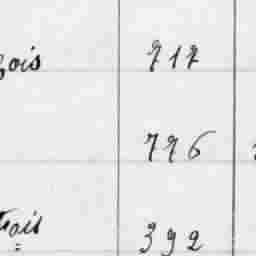 ois 717
776
ois 392